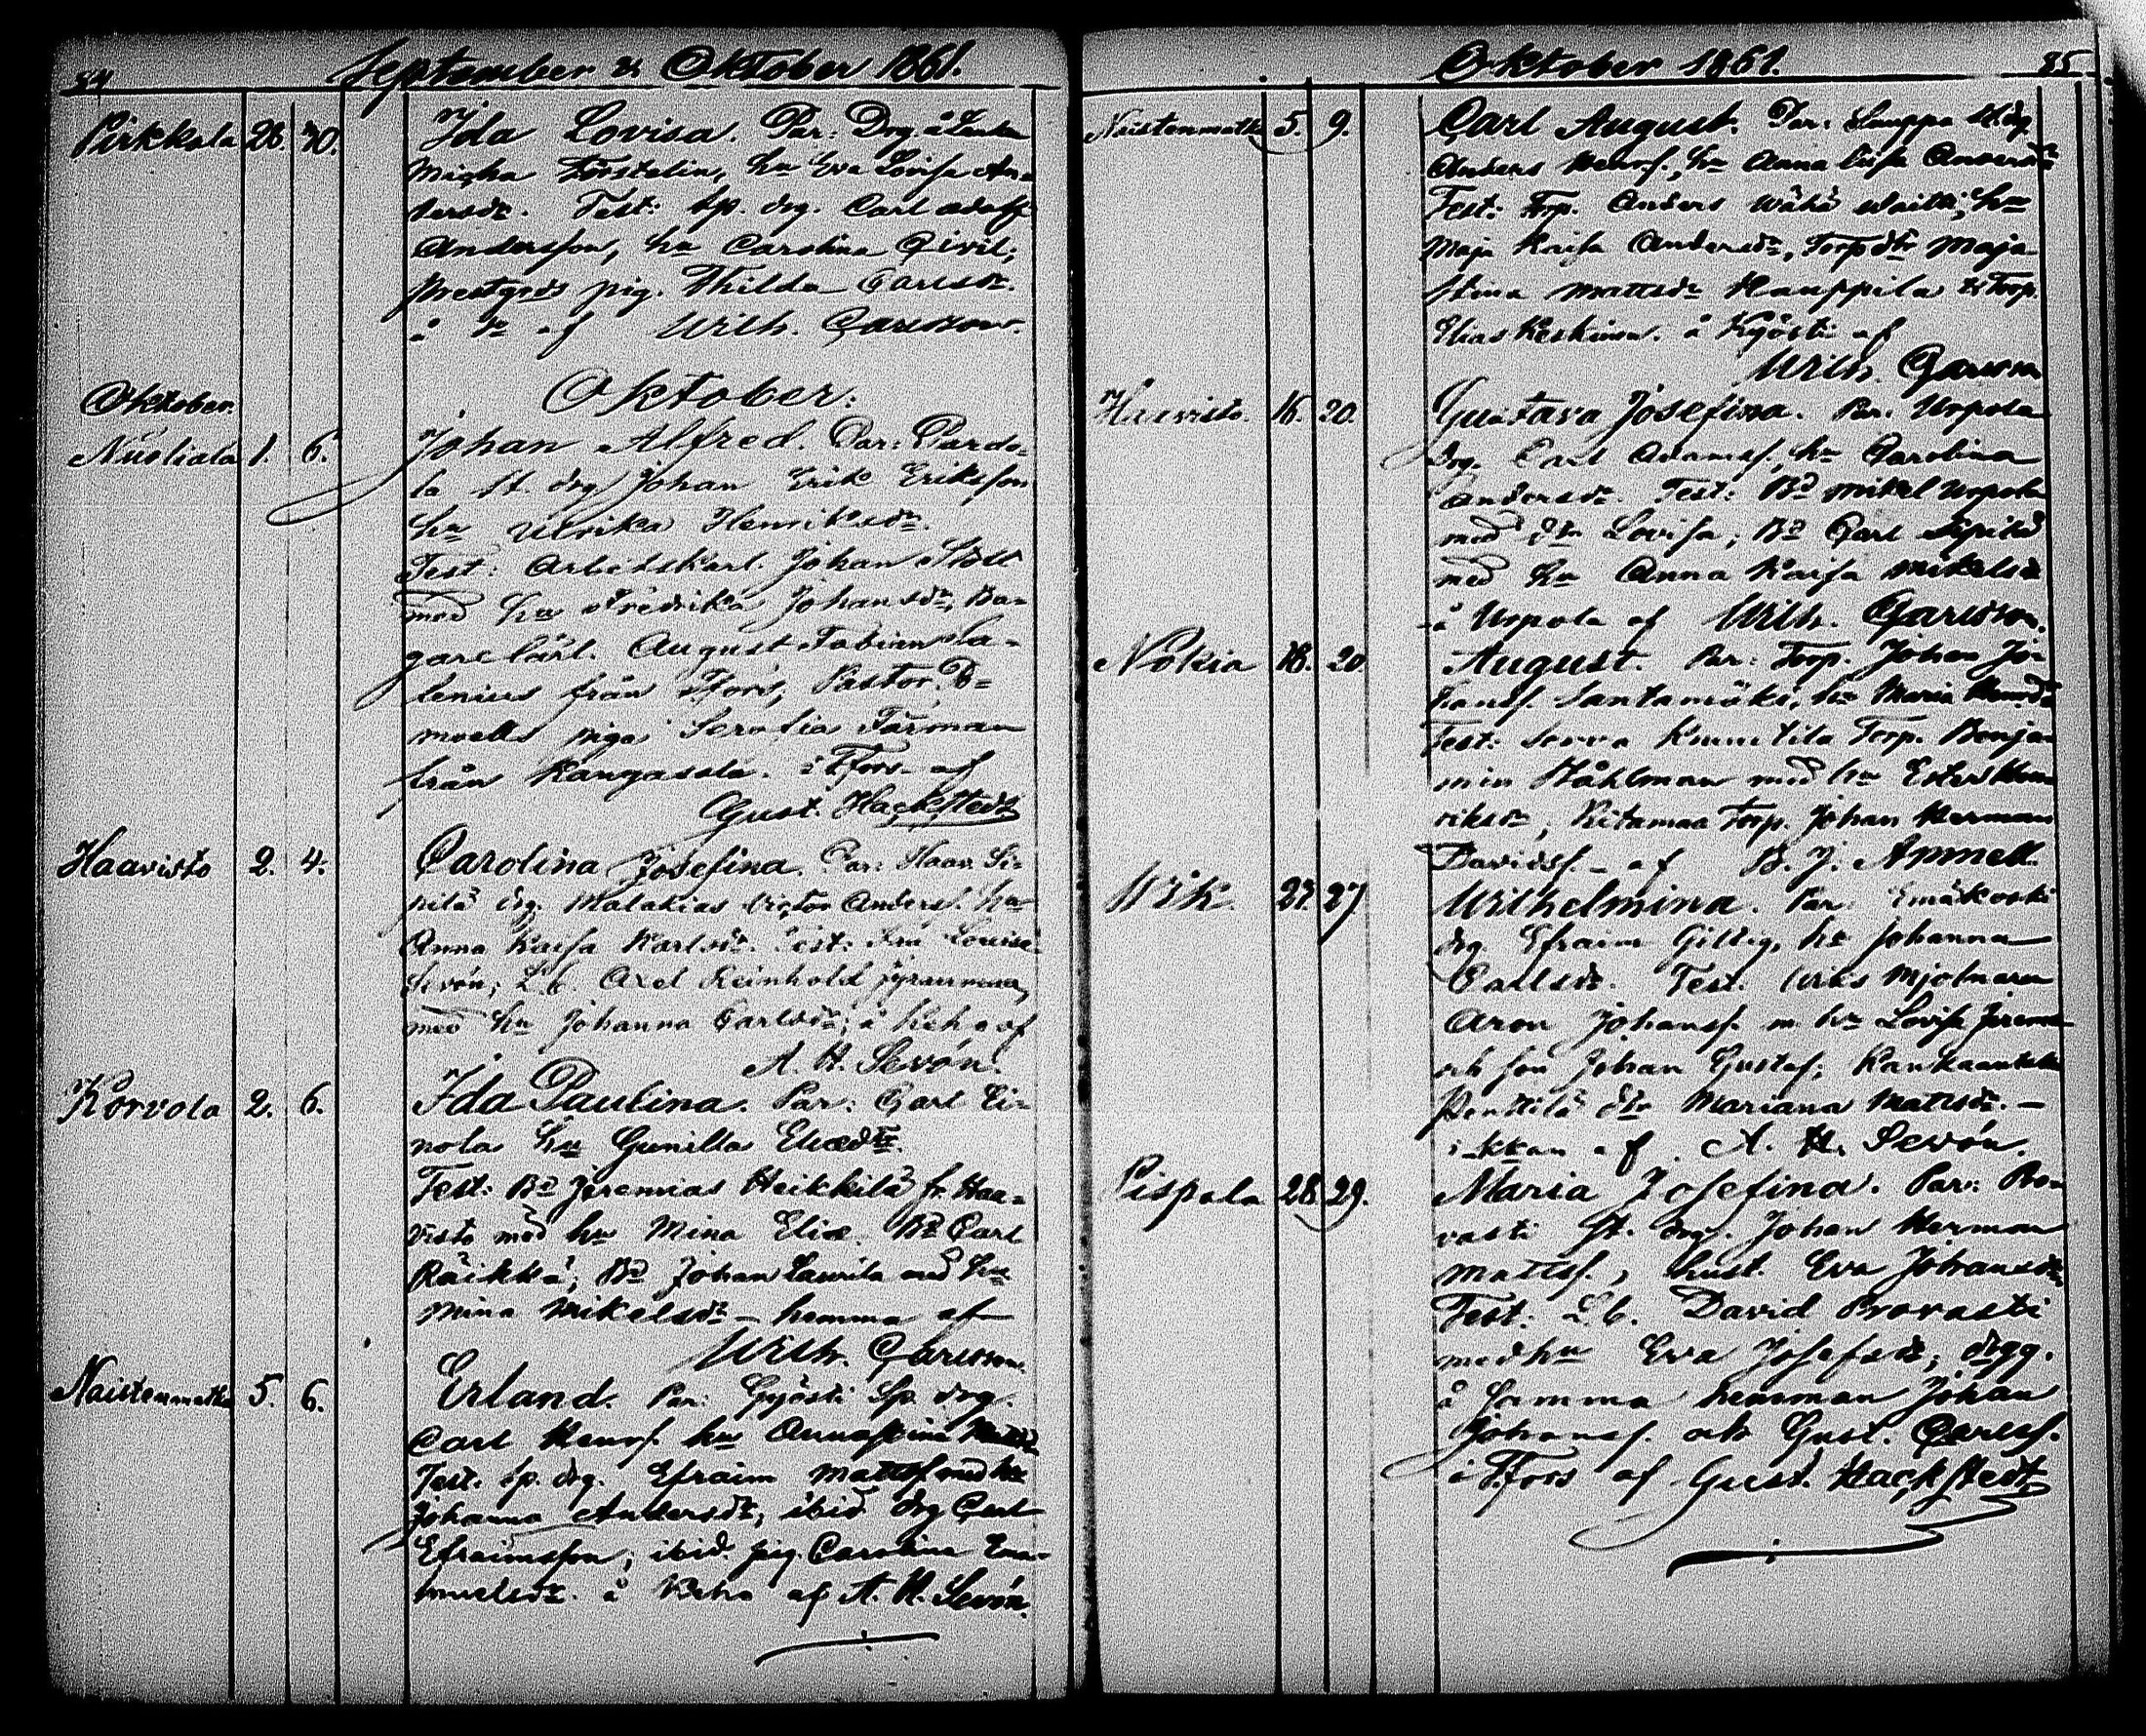 84 September & Oktober 1861.
Pirkkala 28. 30. Ida Lovisa. Par: Drg å
Eva Lovisa An-
dersdr. Test: Sp. drg. Carl Adolf
Andersson, hu Carolina
pig. Thilda Carlsdr.
å do af Wilh. Carlsson.
Oktober. Oktober:
Nuoliala 1. 6. Johan Alfred. Par: Pardo-
la St. drg Johan Erik Eriksson
hu Ulrika Henriksdr.
Test: Arbetskarl. Johan
med hu Fredrika Johansdr, Ba-
garelärl. August Fabian Sa-
lenius från Tfors, Pastor
piga Serafia Färman
från Kangasala. i Tfors af
Gust. Hackstedt
Haavisto 2. 4. Carolina Josefina. Par: Haav. Si-
pilä drg. Malakias Victor Anders. hu
Anna Kaisa Karlsdr. Test: Louise
Sevón; L.b. Axel Reinhold
med hu Johanna Carlsdr; å Reha af
A. H. Sevón.
Korvola 2. 6. Ida Paulina. Par: Carl Ei-
nola hu Gunilla
Test: Bd Jeremias Heikkilä fr. Haa-
visto med hu Mina Eliæ. Bd Carl
Räikkä; Bd Johan Laurila med hu
Mina Mikelsdr – hemma af
Wilh. Carlsson.
Naistenmatka 5. 6. Erland. Par: Gyösti Sp. drg.
Carl Henrs. hu Annastina
Test. Sp. drg. Efraim Mattss med hu
Johanna Andersdr; ibid drg Carl
Efraimsson; ibid. pig. Carolina Ema-
nuelsdr. å Reha af A. H. Sevón.
Oktober 1861. 85
Naistenmatka 5. 9. Carl August. Par: Lauppa St. drg
Anders Henrs., hu Anna Lisa Andersdr
Test: Torp. Anders Wähä hu
Maja Kaisa Andersdr, Torpdtr Maja
Stina Mattsdr Kauppila & Torp.
Elias Keskinen. å Kyösti af
Wilh. Carlsson
Haavisto. 16. 20. Gustava Josefina. Par. Urpola
drg. Carl Adamss, hu Carolina
Andersdr. Test: Bd Mikel Urpola
med dtr Lovisa; Bd Carl Sipilä
med hu Anna Kaisa Mikelsdr
å Urpola af Wilh. Carlsson.
Nokia 18. 20 August. Par: Torp. Johan Jo-
hanss. Santamäki, hu Maria
Test: Torp. Benja-
min Ståhlman med hu Ester Hen-
riksdr; Ritamaa Torp. Johan Herman
Davidss. – af B. J. Apmell.
Wik. 23. 27. Wilhelmina. Par: Emäkoski
drg. Efraim Gillig, hu Johanna
Carlsdr. Test. Wiks Mjölnaren
Aron Johanss. m. hu Lovisa
och son Johan Gustaf;
Penttilä dtr Mariana Mattsdr. –
i kkan af A. H. Sevón.
Pispala 28. 29. Maria Josefina. Par: Pro-
vasti St. drg. Johan Herman
Mattss., hust. Eva Johansdr
Test: L.b. David Provasti
med hu Eva Josefsdr; drgg.
å samma hemman Johan
Johanss. och Gust. Carlss.
i Tfors af Gust. Hackstedt